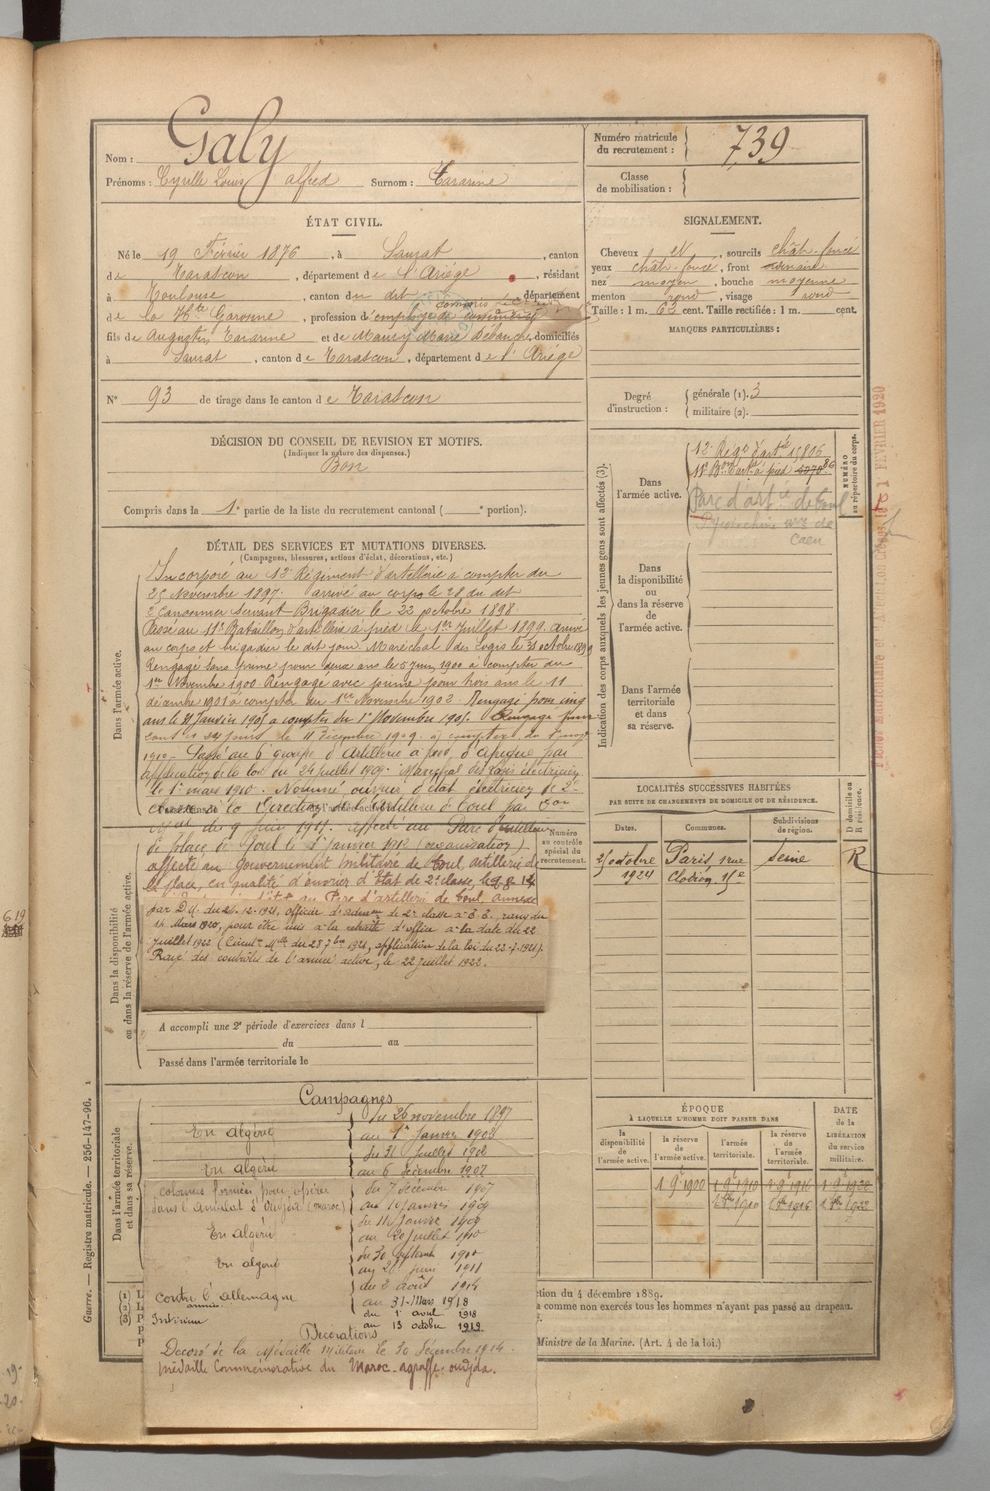 Nom : Galy
Prénoms : Cyrille Louis Alfred Surnom : Tararine
Numéro matricule du recrutement : 739
Classe de mobilisation :
ÉTAT CIVIL.
Né le 19 Février 1876, à Saurat, canton
de Tarascon, département de l'Ariège, résidant
à Toulouse, canton du dit, département
de la Hte Garonne, profession d'employé de commerce
fils de Augustin Tararine et de Maury Marie Débanche, domiciliés
à Saurat, canton de Tarascon, département de l'Ariège
N° 93 de tirage dans le canton de Tarascon
SIGNALEMENT.
Cheveux et, sourcils chât. foncé
yeux chât. foncé, front
nez moyen, bouche moyenne
menton rond, visage rond
Taille : 1 m. 63 cent. Taille rectifiée : 1 m. cent.
MARQUES PARTICULIÈRES :
Degré d'instruction : générale (1). 3
militaire (2).
DÉCISION DU CONSEIL DE REVISION ET MOTIFS.
(Indiquer la nature des dispenses.)
Bon
Compris dans la 1e partie de la liste du recrutement cantonal ( e portion).
DÉTAIL DES SERVICES ET MUTATIONS DIVERSES.
(Campagnes, blessures, actions d'éclat, décorations, etc.)
Dans l'armée active.
Incorporé au 13e Régiment d'artillerie à compter du
25 Novembre 1897. arrivé au corps le 28 du dit
2e Canonnier Servant Brigadier le 22 octobre 1898
Passé au 11e Bataillon d'artillerie à pied le 1er Juillet 1899. arrivé
au corps et brigadier le dit jour. Maréchal des Logis le 31 octobre 1899
Rengagé sans prime pour deux ans le 5 juin 1900 à compter du
1er Novembre 1900 Rengagé avec prime pour trois ans le 11
décembre 1901 à compter du 1er Novembre 1902 Rengagé pour cinq
ans le 31 Janvier 1905 à compter du 1er Novembre 1905. Rengagé pour
jours le 11 Décembre 1909 à compter du
1910. Passé au 6e groupe d'Artillerie à pied d'Afrique par
application de la loi du 24 juillet 1909. Maréchal des Logis électricien
le 1er mars 1910. Nommé ouvrier d'état électricien de 2e
classe à la Direction d'Artillerie de Toul par Don
du 9 juin 1911. affecté au Parc d'artillerie
de place de Toul le 1er Janvier 1912 (organisation)
affecté au Gouvernement militaire de Toul artillerie de
la place, en qualité d'ouvrier d'Etat de 2e classe, le
au Parc d'artillerie de Toul, annexe
par D.M. du 21.12.1921, officier d'admon de 2e classe à T.T. rang du
16 Mars 1920, pour être mis à la retraite d'office à la date du 22
Juillet 1922 (Circul. Mlle du 23 7bre 1921, application de la loi du 22-7-1921).
Rayé des contrôles de l'armée active, le 22 juillet 1922.
Dans la disponibilité ou dans la réserve de l'armée active.
Numéro au contrôle spécial du recrutement.
A accompli une 2e période d'exercices dans l
du au
Passé dans l'armée territoriale le
Dans l'armée territoriale et dans sa réserve.
Campagnes
En algérie du 26 novembre 1897
au 1er Janvier 1902
En algérie du 31 Juillet 1902
au 6 décembre 1907
colonnes formées pour opérer du 7 décembre 1907
dans l'amalat d'Oudjda (maroc) au 10 janvier 1909
En algérie du 11 Janvier 1909
au 20 Juillet 1910
En algérie du 30 Septemb 1910
au 20 juin 1911
contre l'allemagne du 2 août 1914
armée au 31 Mars 1918
Intérieur du 1 avril 1918
au 13 octobre 1919
Décorations
Décoré de la Médaille Militaire le 30 Décembre 1914.
Médaille Commémorative du Maroc - agraffe oudjda.
Indication des corps auxquels les jeunes gens sont affectés (3).
NUMÉRO au répertoire du corps.
Dans l'armée active.
13e Régt d'artie 15806
11e Bon d'artie à pied
Parc d'artie de Toul
Caen
Dans la disponibilité ou dans la réserve de l'armée active.
Dans l'armée territoriale et dans sa réserve.
LOCALITÉS SUCCESSIVES HABITÉES
PAR SUITE DE CHANGEMENTS DE DOMICILE OU DE RÉSIDENCE.
Dates. Communes. Subdivisions de région. D domicile ou R résidence.
25 octobre 1924 Paris, rue Clodion 15e Seine R
ÉPOQUE
À LAQUELLE L'HOMME DOIT PASSER DANS
la disponibilité de l'armée active. la réserve de l'armée active. l'armée territoriale. la réserve de l'armée territoriale. DATE de la LIBÉRATION du service militaire.
1 9e 1900 1 9e 1910 1 9e 1916 1 9e 1922
1 8bre 1910 1 8bre 1916 1 8bre 1922
ction du 4 décembre 1889.
a comme non exercés tous les hommes n'ayant pas passé au drapeau.
Ministre de la Marine. (Art. 4 de la loi.)
Guerre. — Registre matricule. — 256-147-96.
1 FÉVRIER 1920